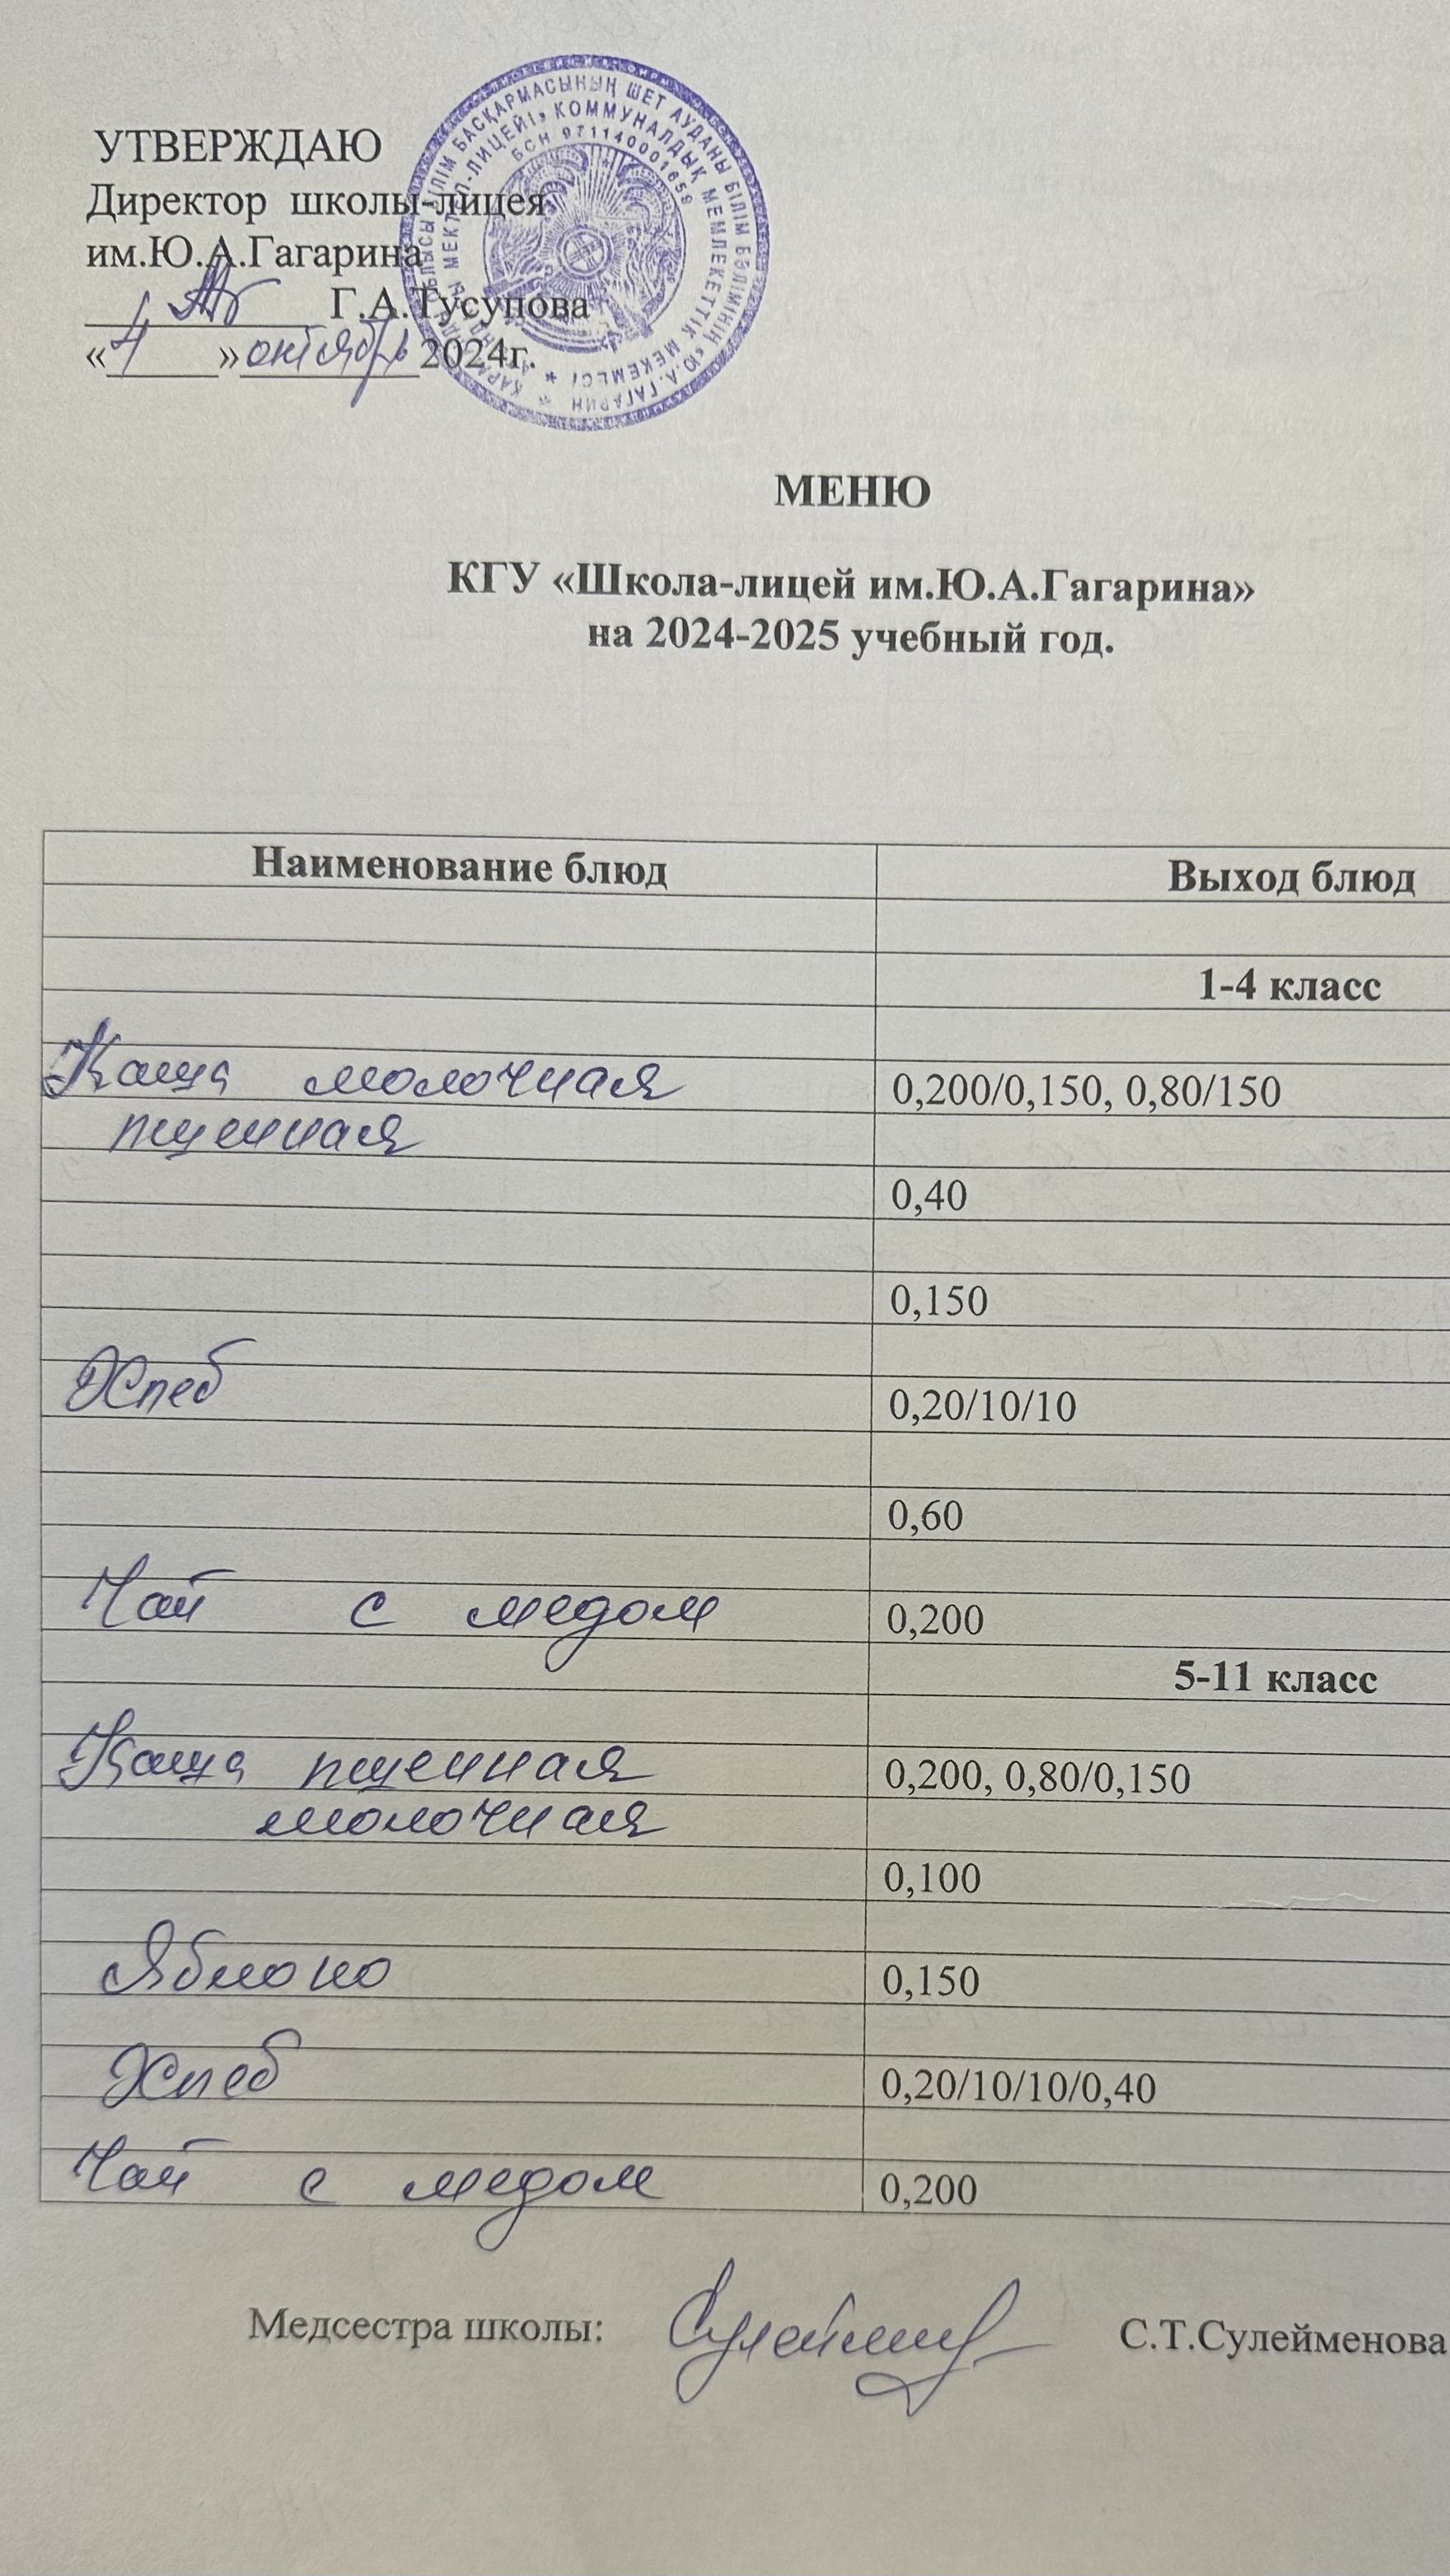 УТВЕРЖДАЮ
Директор школы-лицея
им.Ю.А.Гагарина
Г.А.Тусупова
«4» октябрь 2024г.
БАСҚАРМАСЫНЫҢ ШЕТ АУДАНЫ БІЛІМ БӨЛІМІНІҢ «Ю.А.ГАГАРИН
МЕКТЕП-ЛИЦЕЙІ» КОММУНАЛДЫҚ МЕМЛЕКЕТТІК МЕКЕМЕСІ
БСН 971140001659
МЕНЮ
КГУ «Школа-лицей им.Ю.А.Гагарина»
на 2024-2025 учебный год.
Наименование блюд Выход блюд
1-4 класс
Каша молочная 0,200/0,150, 0,80/150
пшенная
0,40
0,150
Хлеб 0,20/10/10
0,60
Чай с медом 0,200
5-11 класс
Каша пшенная 0,200, 0,80/0,150
молочная
0,100
Яблоко 0,150
Хлеб 0,20/10/10/0,40
Чай с медом 0,200
Медсестра школы: С.Т.Сулейменова